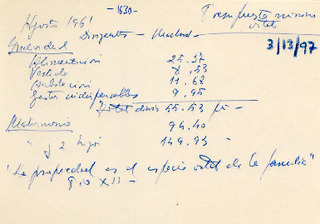 -1530-
Agosto 1961
Presupuesto mínimo vital
Dirigentes - Madrid -
3/13/97
Individual
Alimentación 25.37
Vestido 8,53
Habitación 11.68
Gastos indispensables 9.95
Total diario 55.53 pts -
Matrimonio 94.40
" y 2 hijos 149.93 -
"La propiedad es el espacio vital de la familia"
Pío XII -